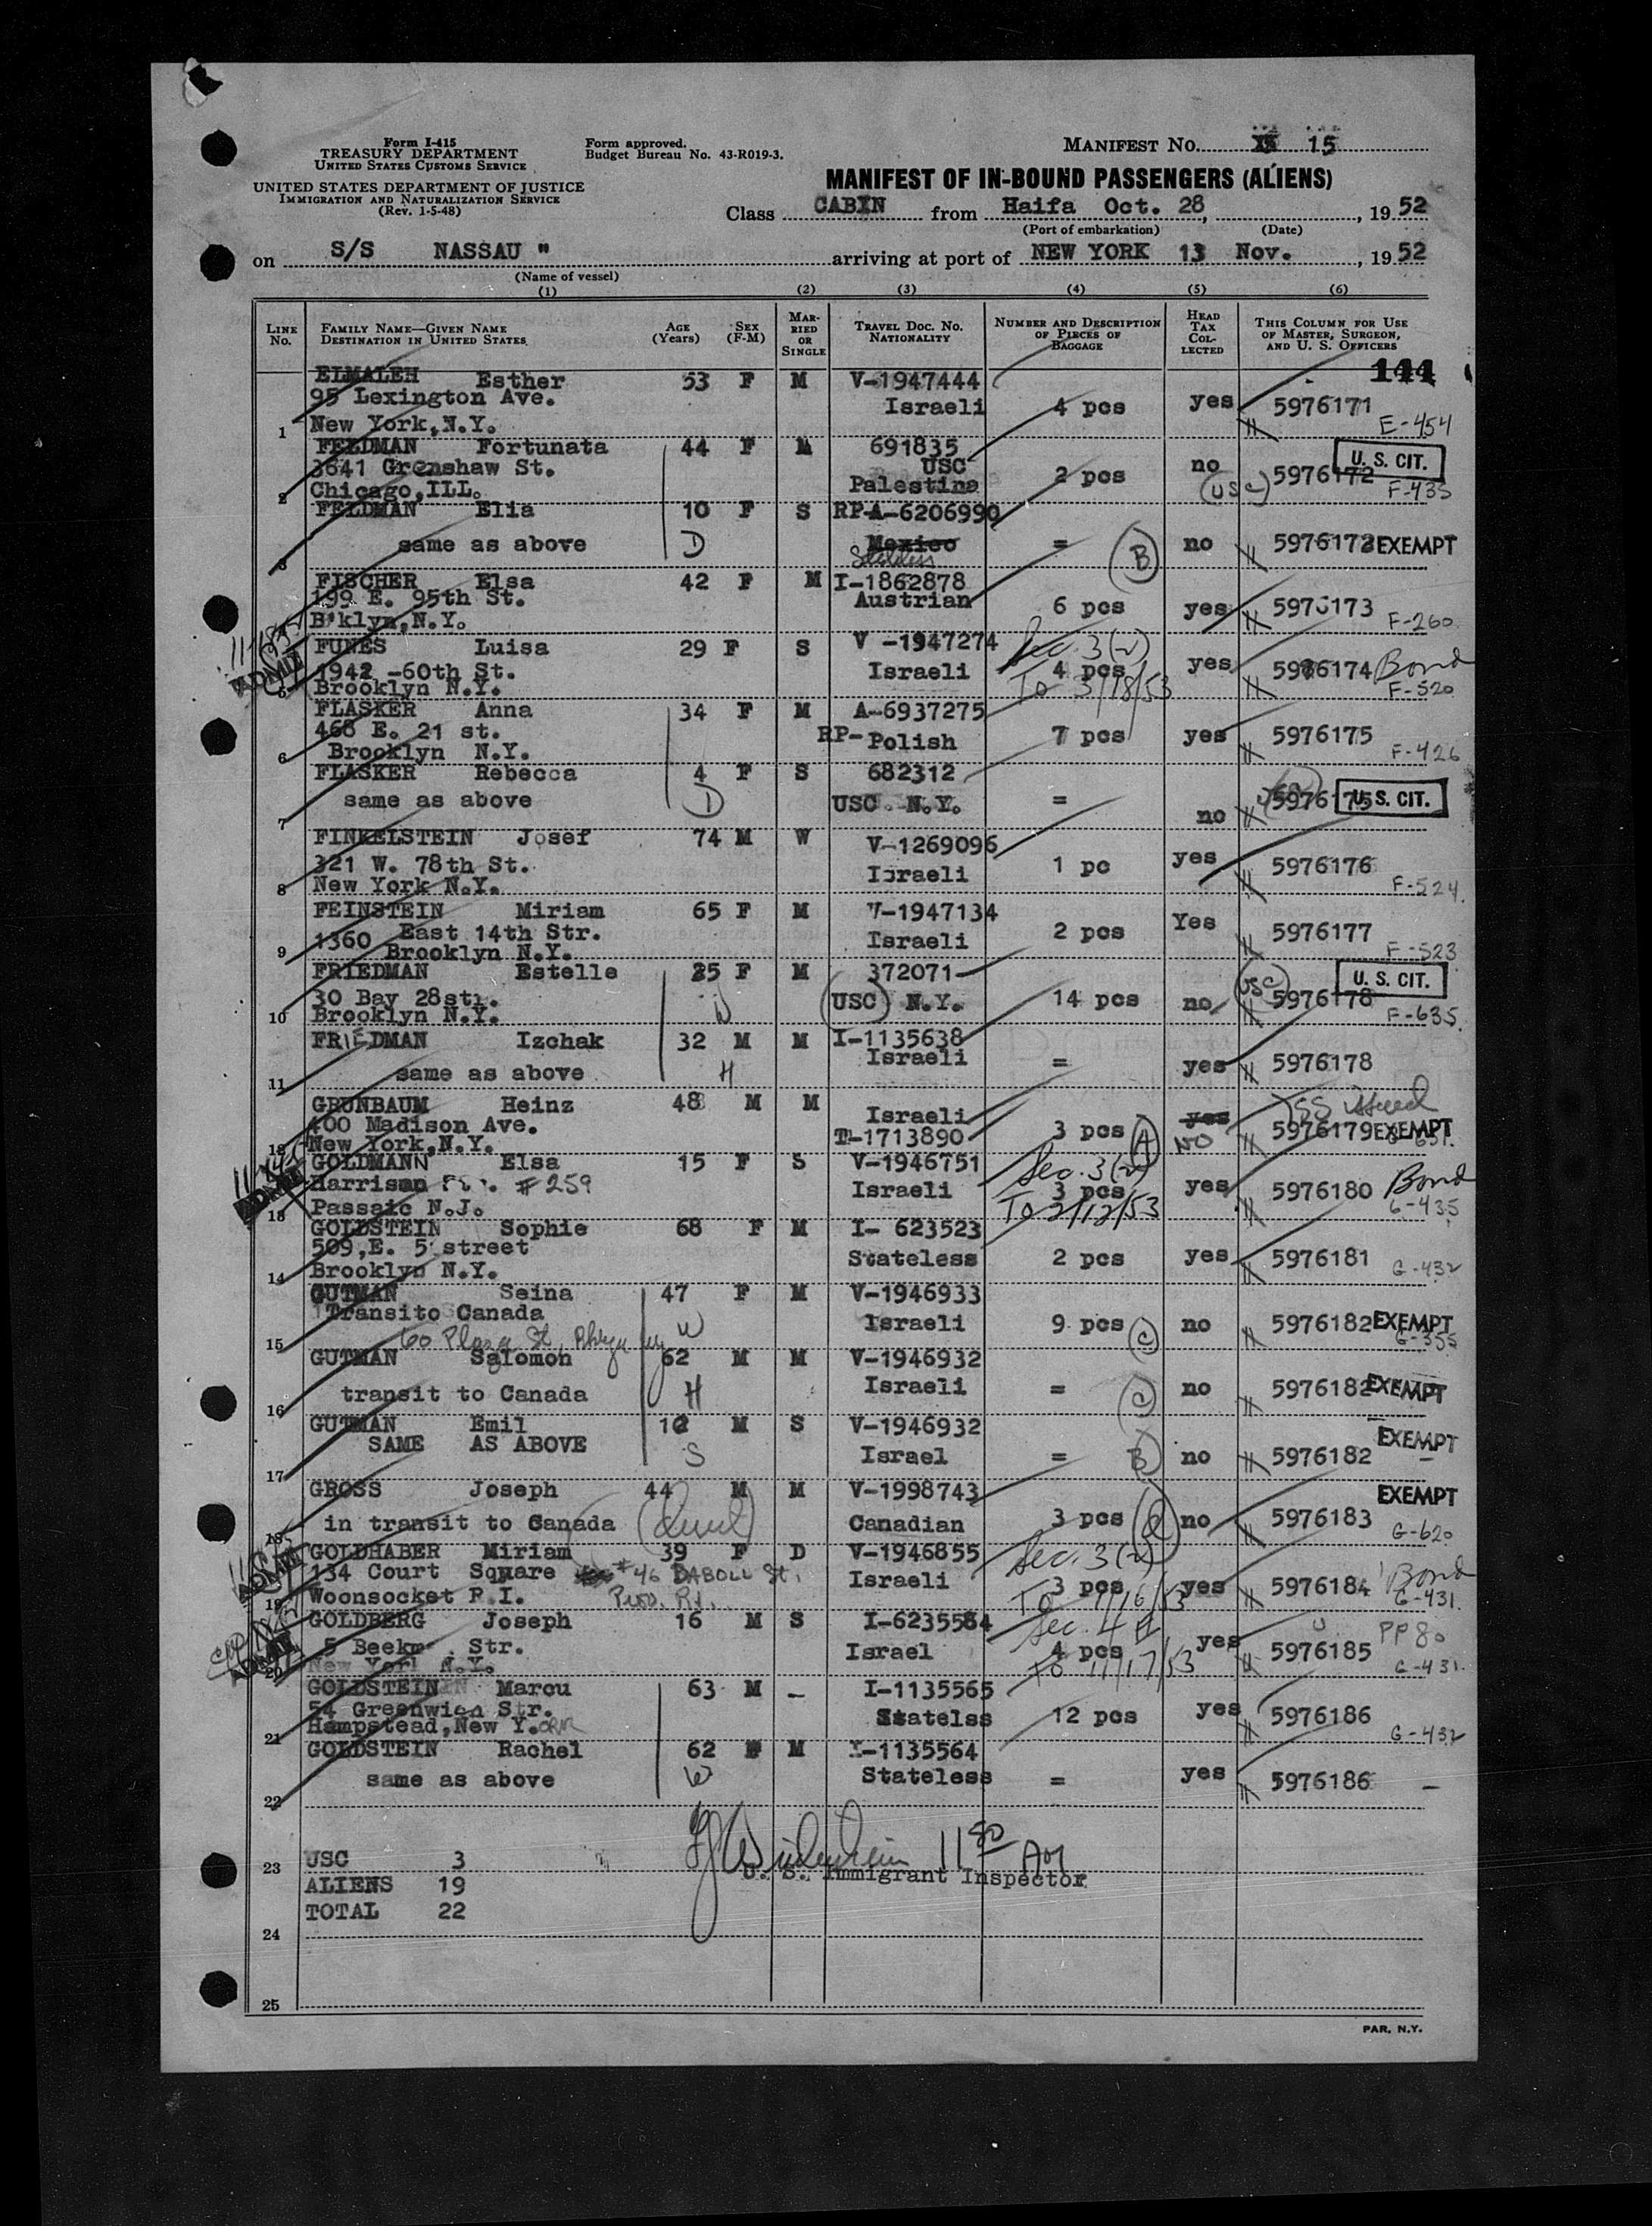 Form I-415
TREASURY DEPARTMENT
UNITED STATES CUSTOMS SERVICE
UNITED STATES DEPARTMENT OF JUSTICE
IMMIGRATION AND NATURALIZATION SERVICE
(Rev. 1-5-48)
Form approved.
Budget Bureau No. 43-R019-3.
MANIFEST NO. 15
MANIFEST OF IN-BOUND PASSENGERS (ALIENS)
Class CABIN from Haifa Oct. 28, , 1952
(Port of embarkation) (Date)
on S/S NASSAU " arriving at port of NEW YORK 13 Nov. , 1952
(Name of vessel)
(1) (2) (3) (4) (5) (6)
LINE NO. FAMILY NAME—GIVEN NAME DESTINATION IN UNITED STATES AGE (YEARS) SEX (F-M) MARRIED OR SINGLE TRAVEL DOC. NO. NATIONALITY NUMBER AND DESCRIPTION OF PIECES OF BAGGAGE HEAD TAX COLLECTED THIS COLUMN FOR USE OF MASTER, SURGEON, AND U. S. OFFICERS
144
ELMALEH Esther 53 F M V-1947444
95 Lexington Ave. Israeli 4 pcs yes 5976171
1 New York,N.Y. E-454
FELDMAN Fortunata 44 F M 691835 U. S. CIT.
3641 Grenshaw St. USC 2 pcs no 5976172
2 Chicago,ILL. Palestina (USC) F-435
FELDMAN Elia 10 F S RP-A-6206990
same as above D Mexico = B no 5976172 EXEMPT
3
FISCHER Elsa 42 F M I-1862878
199 E. 95th St. Austrian 6 pcs yes 5976173
4 B'klyn,N.Y. F-260
FUNES Luisa 29 F S V -1947274 Sec. 3(2)
ADMIT 1942 -60th St. Israeli 4 pcs yes 5976174 Bond
5 Brooklyn N.Y. To 3/18/53 F-520
FLASKER Anna 34 F M A-6937275
468 E. 21 st. RP- Polish 7 pcs yes 5976175
6 Brooklyn N.Y. F-426
FLASKER Rebecca 4 F S 682312
same as above D USC N.Y. = no 5976175 U. S. CIT.
7
FINKELSTEIN Josef 74 M W V-1269096
321 W. 78th St. Israeli 1 pc yes 5976176
8 New York N.Y. F-524
FEINSTEIN Miriam 65 F M V-1947134
1360 East 14th Str. Israeli 2 pcs Yes 5976177
9 Brooklyn N.Y. F-523
FRIEDMAN Estelle 25 F M 372071 U. S. CIT.
30 Bay 28str. W (USC) N.Y. 14 pcs no USC 5976178
10 Brooklyn N.Y. F-635
FRIEDMAN Izchak 32 M M I-1135638
same as above H Israeli = yes 5976178
11
GRUNBAUM Heinz 48 M M Israeli SS issued
400 Madison Ave. T-1713890 3 pcs A yes NO 5976179 EXEMPT
12 New York,N.Y.
GOLDMANN Elsa 15 F S V-1946751 Sec. 3(2)
Harrison # 259 Israeli 3 pcs yes 5976180 Bond
13 Passaic N.J. To 2/12/53 G-435
GOLDSTEIN Sophie 68 F M I- 623523
509,E. 5 street Stateless 2 pcs yes 5976181
14 Brooklyn N.Y. G-432
GUTMAN Seina 47 F M V-1946933
Transito Canada W Israeli 9 pcs C no 5976182 EXEMPT
15 60 Plaza St G-355
GUTMAN Salomon 62 M M V-1946932
transit to Canada H Israeli = C no 5976182 EXEMPT
16
GUTMAN Emil 12 M S V-1946932 EXEMPT
SAME AS ABOVE S Israel = B no 5976182
17
GROSS Joseph 44 M M V-1998743 EXEMPT
in transit to Canada Canadian 3 pcs no 5976183
18 G-620
GOLDHABER Miriam 39 F D V-1946855 Sec. 3(2)
ADMIT 134 Court Square #46 BABOLL St. Israeli 3 pcs yes 5976184 Bond
19 Woonsocket R.I. Prov. R.I. G-431
GOLDBERG Joseph 16 M S I-6235584 Sec. 4 E
5 Beekm Str. Israel 4 pcs yes 5976185 PP80
20 New York N.Y. To 11/17/53 G-431
GOLDSTEIN Marcu 63 M - I-1135565
54 Greenwich Str. Statelss 12 pcs yes 5976186
21 Hempstead,New Y. G-432
GOLDSTEIN Rachel 62 F M I-1135564
same as above W Stateless = yes 5976186 -
22
23 USC 3 11 50 AM
U. S. Immigrant Inspector
ALIENS 19
TOTAL 22
24
25
PAR, N.Y.